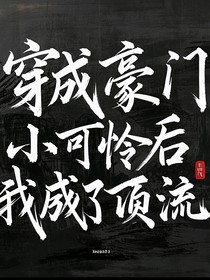 穿成豪门
小可怜后
我成了顶流